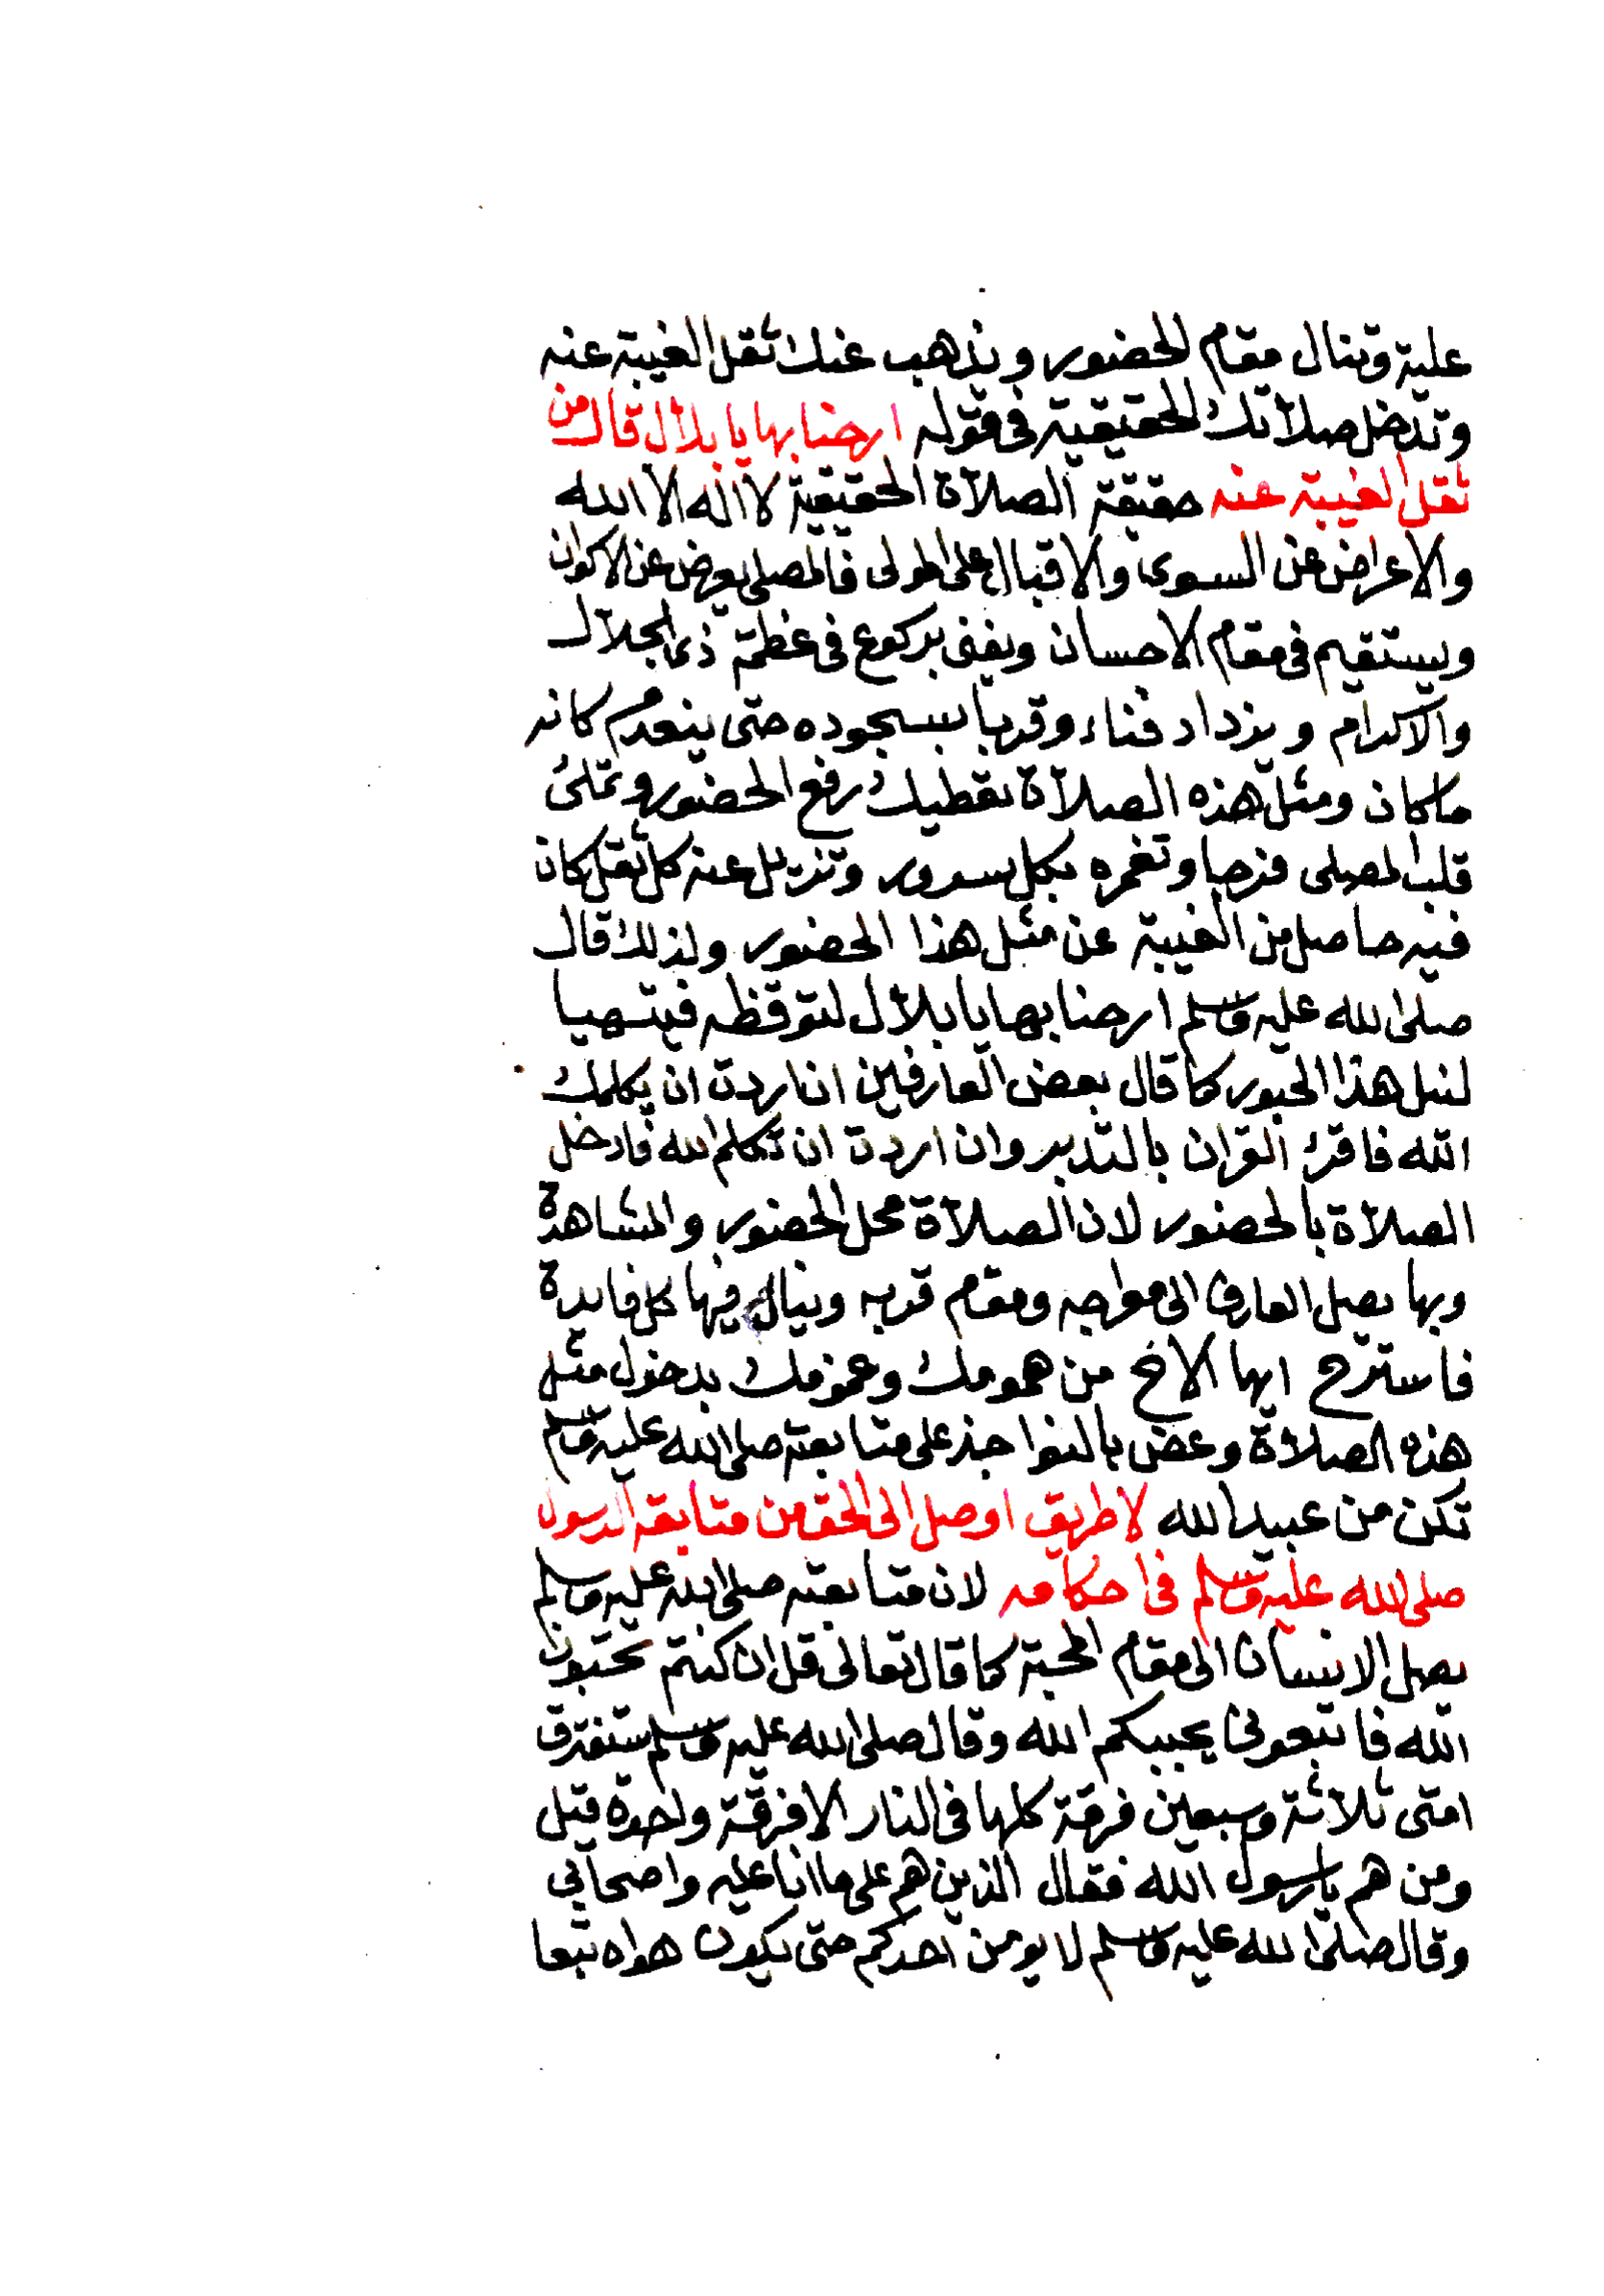 عليه وتنال مقام الحضور ويذهب عنك ثقل الغيبة عنه
وتدخل صلاتك الحقيقية في قوله ارحنا بها يا بلال قال من
ثقل الغيبة عنه حقيقة الصلاة الحقيقية لا اله الا الله
والاعراض عن السوى والاقبال على المولى فالمصلى يعرض عن الاكوان
ويستقيم في مقام الاحسان ويفنى بركوع في عظمة ذي الجلال
والاكرام ويزداد فناء وقربا بسجوده حتى ينعدم كانه
ما كان ومثل هذه الصلاة تعطيك رفع الحضور وتملئ
قلب المصلى فرحا وتغمره بكل سرور وتزيل عنه كل ثقل كان
فيه حاصل من الغيبة عن مثل هذا الحضور ولذلك قال
صلى الله عليه وسلم ارحنا بها يا بلال لتوقظه فيتهيا
لنيل هذا الحبور كما قال بعض العارفين ان اردت ان يكلمك
الله فاقرء القران بالتدبر وان اردت ان تكلم الله فادخل
الصلاة بالحضور لان الصلاة محل الحضور والمشاهدة
وبها يصل العارف الى مواجه ومقام قربه وينال فيها كل فايدة
فاسترح ايها الاخ من همومك وغمومك بدخول مثل
هذه الصلاة وعض بالنواجذ على متابعته صلى الله عليه وسلم
تكن من عبيد الله لا طريق اوصل الى الحق من متابعة الرسول
صلى الله عليه وسلم في احكامه لان متابعته صلى الله عليه وسلم
يصل الانسان الى مقام المحبة كما قال تعالى قل ان كنتم تحبون
الله فاتبعونى يحببكم الله وقال صلى الله عليه وسلم ستفترق
امتى ثلاثة وسبعين فرقة كلها في النار الا فرقة واحدة قيل
ومن هم يا رسول الله فقال الذين هم على ما انا عليه واصحابي
وقال صلى الله عليه وسلم لا يومن احدكم حتى يكون هواه تبعا